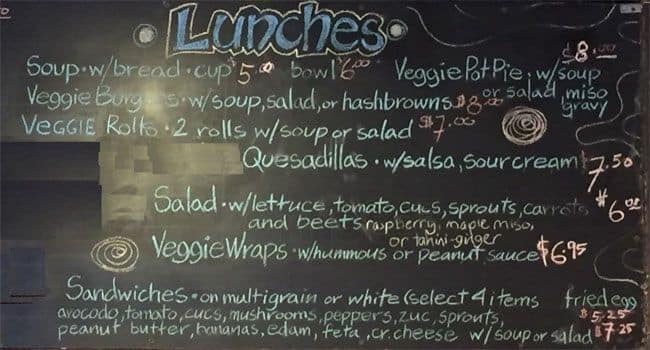 Lunches
Soup • w/bread • cup $5.00 bowl 6.00
Veggie Pot Pie, w/soup $8.00
or salad, miso
gravy
Veggie • w/soup, salad, or hashbrowns $8.00
VEGGIE Rolls • 2 rolls w/soup or salad $7.00
Quesadillas • w/salsa, sour cream 7.50
Salad • w/lettuce, tomato, cucs, sprouts, carrots $6.00
and beets raspberry, maple miso,
or tahini-ginger
Veggie Wraps • w/hummous or peanut sauce $6.95
Sandwiches • on multigrain or white (select 4 items fried egg
avocodo, tomato, cucs, mushrooms, peppers, zuc, sprouts, $5.25
peanut butter, bananas, edam, feta, cr. cheese w/soup or salad $7.25